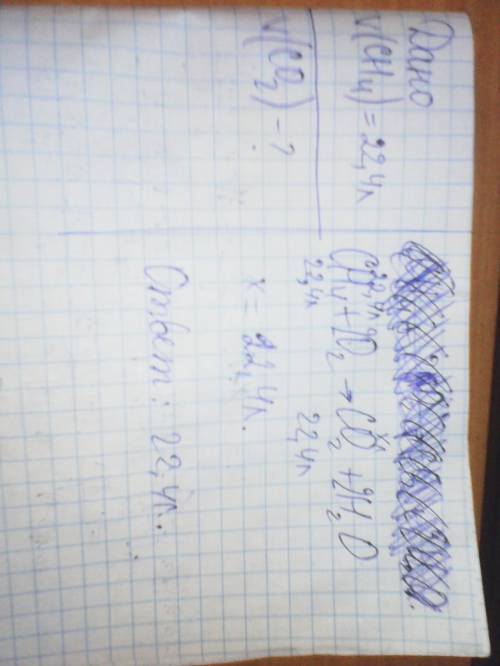 Дано
V(CH₄) = 22,4л
V(CO₂) - ?
22,4л x
CH₄ + 2O₂ → CO₂ + 2H₂O
22,4л 22,4л
x = 22,4л.
Ответ: 22,4л.